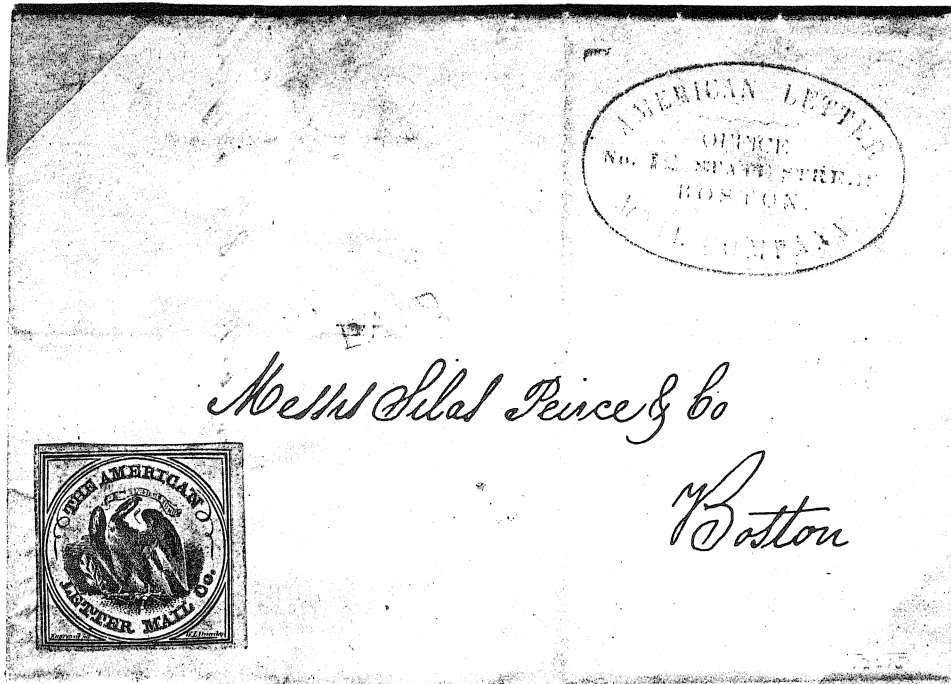 AMERICAN LETTER
OFFICE
No. 12 STATE STREET
BOSTON.
MAIL COMPANY.
PAID
Messrs Silas Peirce & Co
Boston
THE AMERICAN
LETTER MAIL CO.